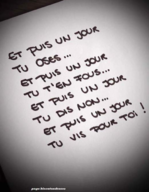 ET PUIS UN JOUR
TU OSES...
ET PUIS UN JOUR
TU T'EN FOUS...
ET PUIS UN JOUR
TU DIS NON...
ET PUIS UN JOUR
TU VIS POUR TOI !